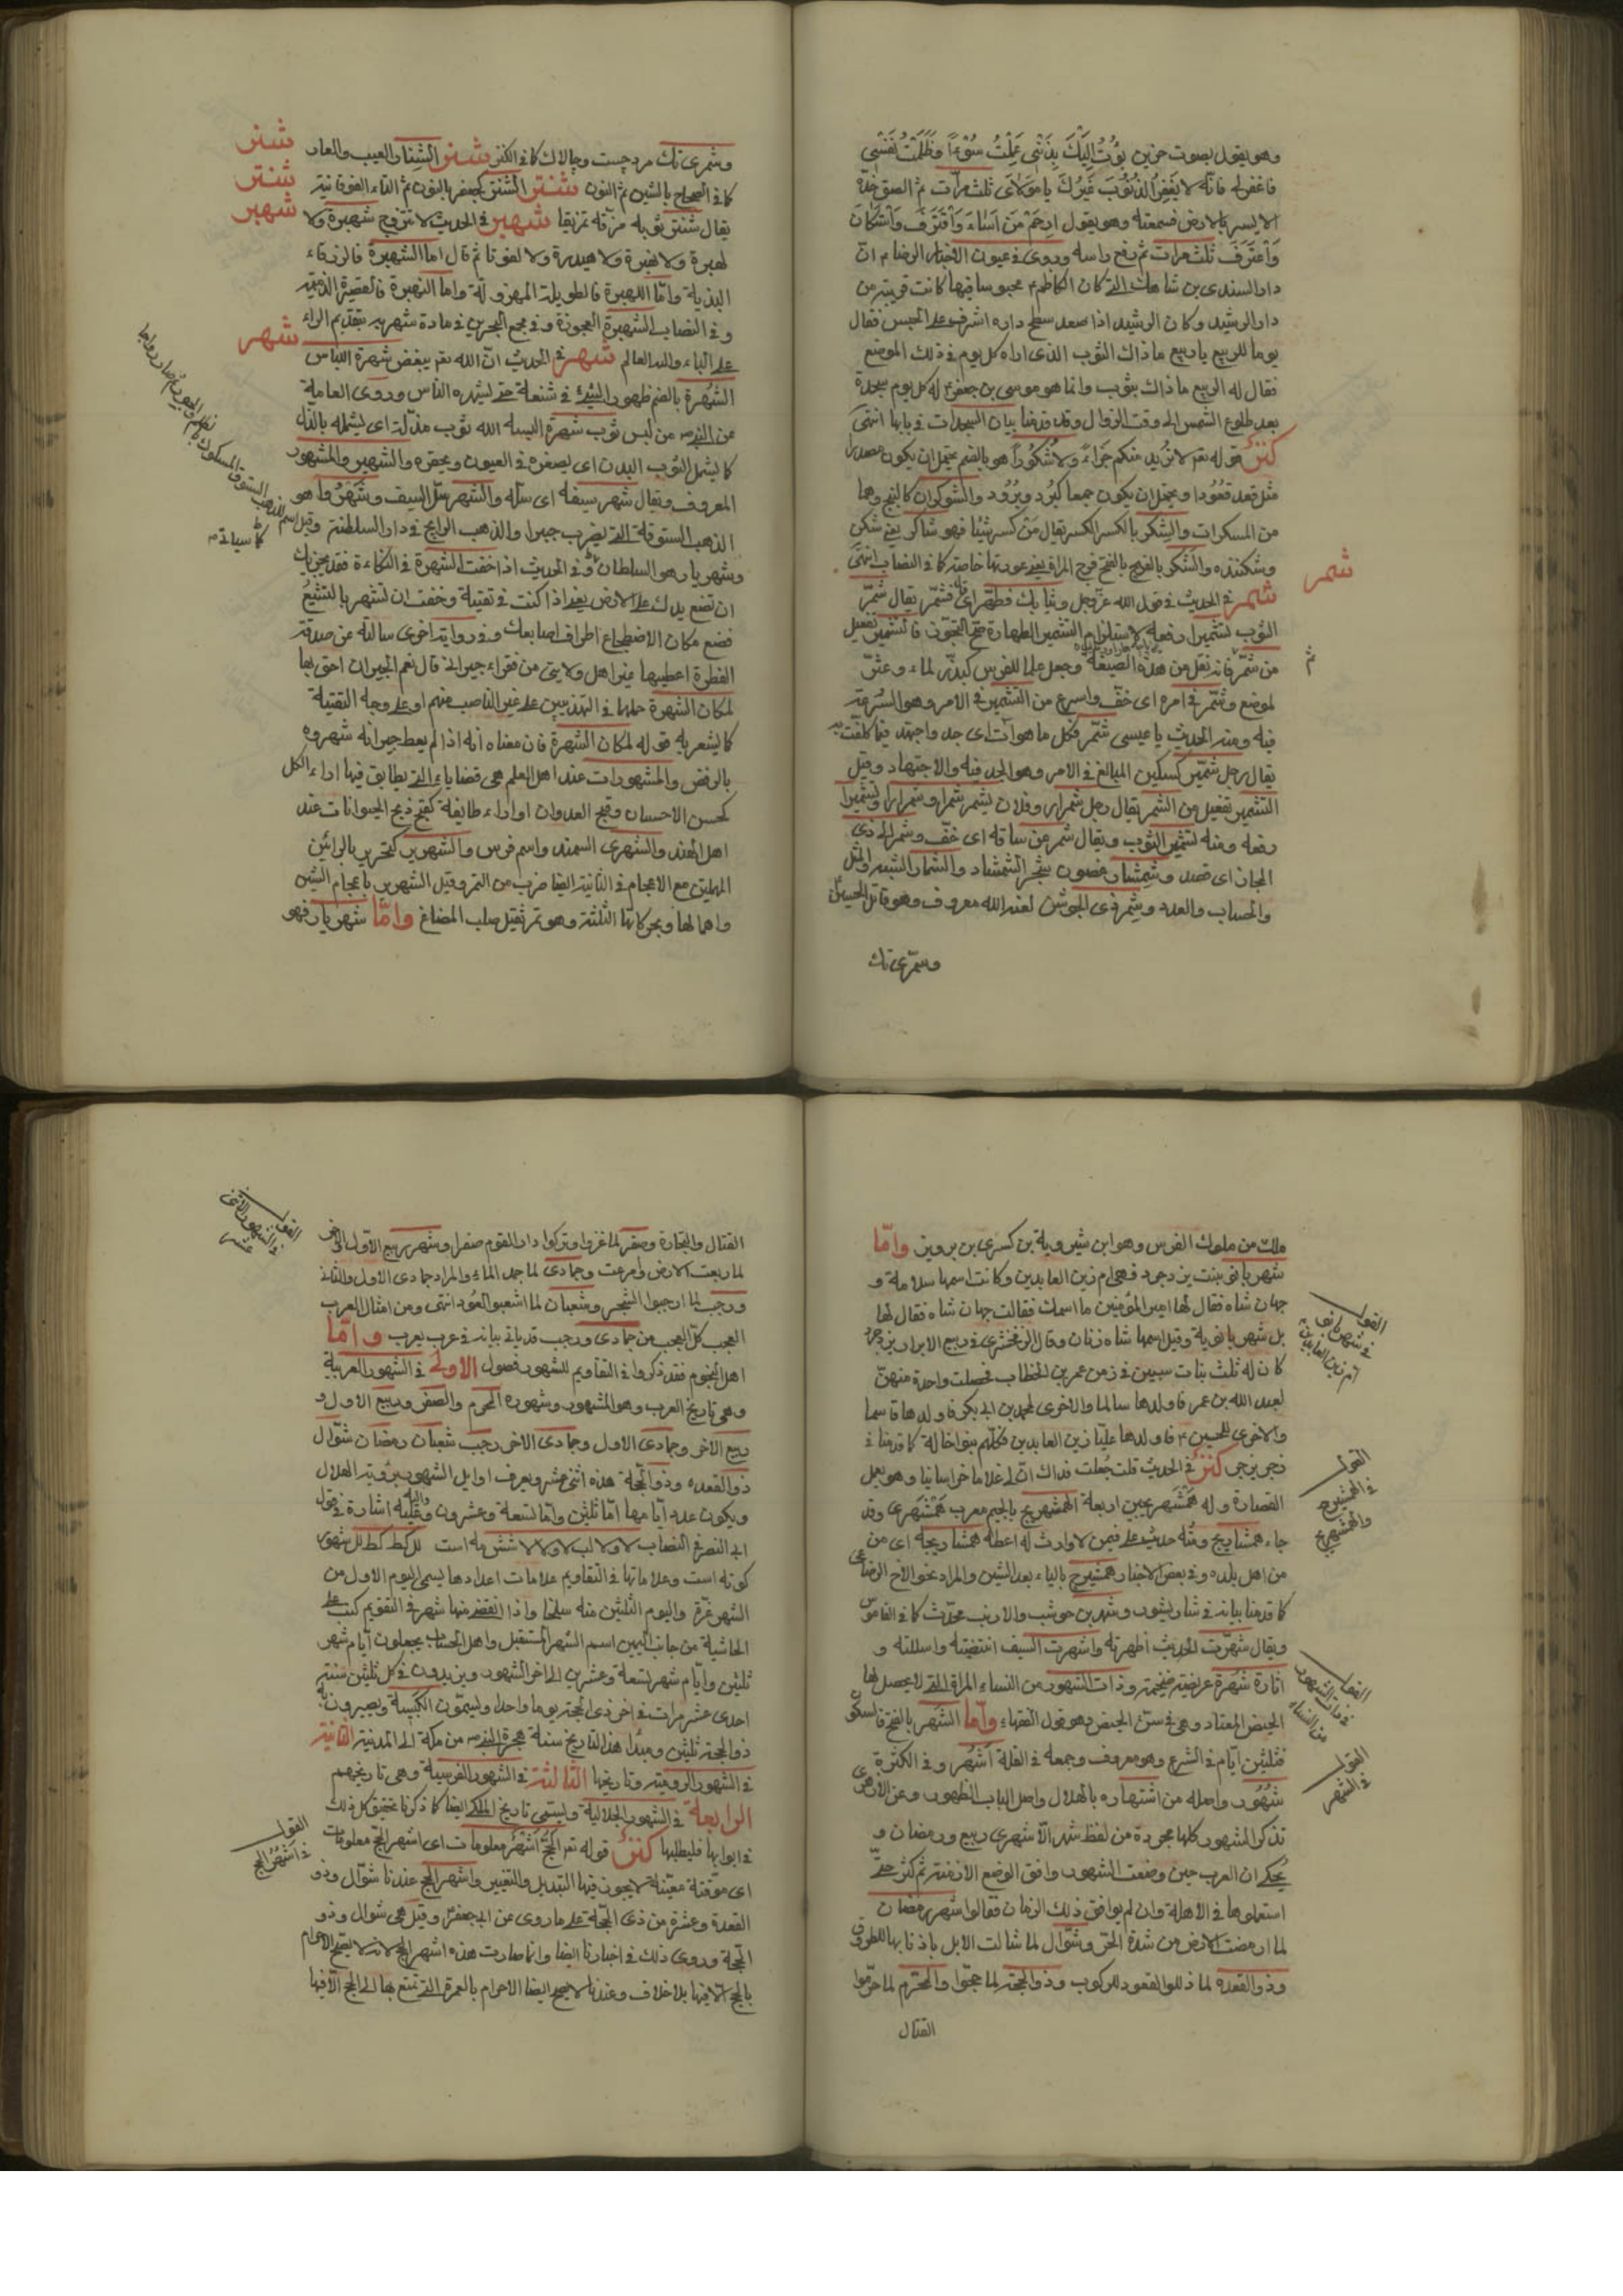 وهو يقول بصوت حزين بؤت اليك بذنبى عملت سوءا وظلمت نفسى
فاغفر لى فانه لا يغفر الذنوب غيرك يا مولاى ثلث مرات ثم الصق خده
الايسر بالارض فسمعته وهو يقول ارحم من اساء واقترف واستكان
واعترف ثلث مرات ثم رفع راسه وروى فى عيون الاخبار الرضا م ان
دار السندى بن شاهك التى كان الكاظم م محبوسا فيها كانت قريبة من
دار الرشيد وكان الرشيد اذا صعد سطح داره اشرف على الحبس فقال
يوما للربيع يا ربيع ما ذاك الثوب الذى اراه كل يوم فى ذلك الموضع
فقال له الربيع ما ذاك بثوب وانما هو موسى بن جعفر م له كل يوم سجدة
بعد طلوع الشمس الى وقت الزوال وقد قدمنا بيان السجدات فى بابها انتهى
كنز قوله تعم لا نريد منكم جزاء ولا شكورا هو بالضم يحتمل ان يكون مصدرا
مثل قعد قعودا ويحتمل ان يكون جمعا كبرد وبرود والشوكران كالبنج وهما
من المسكرات والشكر بالكسر الكسر يقال من كسر شيئا فهو شاكر يعنى شكن
وشكننده والشكر بالفرج بالفتح فرج المراة يعنى عورتها خاصة كما فى النصاب انتهى
شمر
شمر فى الحديث فى قول الله عز وجل وثيابك فطهر اى فشمر يقال شمر
الثوب تشميرا رفعه لاستلزام التشمير الطهارة صح التجوز فالتشمير تفعيل
من شمر فانه نقل من هذه الصيغة وجعل علما للفرس كبذر لماء وعثر
لموضع وشمر فى امره اى خف واسرع من التشمير فى الامر وهو السرعة
فيه ومنه الحديث يا عيسى شمر فكل ما هو آت اى جد واجتهد فيما كلفت به
يقال رجل شمير كسكين المبالغ فى الامر وهو الجد فيه والاجتهاد وقيل
التشمير تفعيل من الشمر يقال رجل شمرار وفلان يشمر شمرا وشمرارا وتشميرا
رفعه ومنه تشمير الثوب ويقال شمر عن ساقه اى خف وشمر الى ذى
المجاز اى قصد وشمشار غصون شجر الشمشاد والشمار الشبيه والمثل
والحساب والعدد وشمر ذى الجوشن لعنه الله معروف وهو قاتل الحسين
وشمرى تك
وشمرى تك مرد چست وچالاك كما فى الكنز شنر الشنار العيب والعار
كما فى الصحاح بالشين ثم النون شنتر الشنتر كجعفر بالنون ثم التاء الفوقانية
يقال شنتر ثوبه مزقه تمزيقا شهبر فى الحديث لا تتزوج شهبرة ولا
لهبرة ولا نهبرة ولا هيدرة ولا لفوتا ثم قال اما الشهبرة فالزرقاء
البذية واما اللهبرة فالطويلة المهزولة واما النهبرة فالقصيرة الذميمة
وفى النصاب الشهبرة العجوزة وفى مجمع البحرين فى مادة شهربر بتقديم الراء
على الباء والله العالم شهر فى الحديث ان الله تعم يبغض شهرة اللباس
الشهرة بالضم ظهور الشىء فى شنعة حتى يشهره الناس وروى العامة
عن النبى ص من لبس ثوب شهرة البسه الله ثوب مذلة اى يشمله بالذل
كما يشمل الثوب البدن اى يصغره فى العيون ويحقره والشهير والمشهور
المعروف ويقال شهر سيفه اى سله والشهر سل السيف وشهروا هو
الذهب الستوقة التى يضرب جبرا والذهب الرايج فى دار السلطنة
وشهريار هو السلطان وفى الحديث اذا خفت الشهرة فى التكاءة فقد يجزيك
ان تضع يدك على الارض يعنى اذا كنت فى تقية وخفت ان تشهر بالتشيع
فضع مكان الاضطجاع اطراف اصابعك وفى رواية اخرى سالته عن صدقة
الفطرة اعطيها غير اهل ولايتى من فقراء جيرانى قال نعم الجيران احق بها
لمكان الشهرة حملها فى التهذيبين على غير الناصب منهم او على وجه التقية
كما يشعر به قوله لمكان الشهرة فان معناه انه اذا لم يعط جيرانه شهروه
بالرفض والمشهورات عند اهل العلم هى قضايا التى يطابق فيها اراء الكل
كحسن الاحسان وقبح العدوان او اراء طايفة كقبح ذبح الحيوانات عند
اهل الهند والشهرى السمند واسم فرس والشهرير كتحرير بالرائين
المهملتين مع الاعجام فى الثانية ايضا ضرب من التمر وقيل الشهريز باعجام الشين
واهمالها وبحركاتها الثلثة وهو تمر ثقيل صلب المضاغ واما شهريار فهو
شنر
شنتر
شهبر
شهر
ملك من ملوك الفرس وهو ابن شيرويه بن كسرى بن برويز واما
شهربانو بنت يزدجرد فهى ام زين العابدين وكانت اسمها سلامة و
جهان شاه فقال لها امير المؤمنين ما اسمك فقالت جهان شاه فقال لها
بل شهربانويه وقيل اسمها شاه زنان وقال الزمخشرى فى ربيع الابرار يزدجرد
كان له ثلث بنات سبين فى زمن عمر بن الخطاب فحصلت واحدة منهن
لعبد الله بن عمر فاولدها سالما والاخرى لمحمد بن ابى بكر فاولدها قاسما
والاخرى للحسين م فاولدها عليا زين العابدين فكلهم بنو خالة كما قدمنا فى
كنز فى الحديث قلت جعلت فداك ان لى غلاما خراسانيا وهو يعمل
القصارة وله همشهريجين اربعة الهمشهريج بالجيم معرب همشهرى وقد
جاء همشاريج ومنه حديث على فيمن لا وارث له اعطه همشاريجه اى من
من اهل بلده وفى بعض الاخبار همشيرج بالياء بعد الشين والمراد نحو الاخ الرضاعى
كما قدمنا بيانه فى شار يشور وشهر بن حوشب والاريب محدث كما فى القاموس
ويقال شهرت الحديث اظهرته واشهرت السيف انتضيته واسللته و
اتارة شهرة عريضة ضخمة وذات الشهور من النساء المراة التى لا يحصل لها
الحيض المعتاد وهى فى سن الحيض وهو قول الفقهاء واما الشهر بالفتح فالسكون
فثلثين ايام فى الشرع وهو معروف وجمعه فى القلة اشهر وفى الكثرة
شهور واصله من اشتهاره بالهلال واصل الباب الظهور وعن الازهرى
تذكر الشهور كلها مجردة من لفظ شهر الا شهرى ربيع ورمضان و
يحكى ان العرب حين وضعت الشهور وافق الوضع الازمنة ثم كثر حتى
استعملوها فى الاهلة وان لم يوافق ذلك الزمان فقالوا شهر رمضان
لما ارمضت الارض من شدة الحر وشوال لما شالت الابل باذنابها للطروق
وذو القعده لما ذللوا القعود للركوب وذو الحجة لما حجوا والمحرم لما حرموا
القتال
القول فى شهر بانويه ام زين العابدين
القول فى الهمشيرج والهمشهريج
القول فى ذات الشهور من النساء
القول فى الشهر
القتال والتجارة وصفر لما غزوا وتركوا دار القوم صفرا وشهر ربيع الاول والاخر
لما ربعت الارض وامرعت وجمادى لما جمد الماء والمراد جمادى الاول والثانى
ورجب لما ارجبوا الشجر وشعبان لما اشعبوا العود انتهى ومن امثال العرب
العجب كل العجب من جمادى ورجب قد ياتى بيانه فى عرب يعرب واما
اهل النجوم فقد ذكروا فى التقاويم للشهور فصول الاولى فى الشهور العربية
وهى تاريخ العرب وهو المشهور وشهوره المحرم والصفر وربيع الاول و
ربيع الاخر وجمادى الاول وجمادى الاخر رجب شعبان رمضان شوال
ذو القعده وذو الحجة هذه اثنى عشر ويعرف اوايل الشهور برؤية الهلال
ويكون عدد ايامها اما ثلثين واما تسعة وعشرون واليه اشارة فى قول
ابى النصر فى النصاب لا ولا لب لا ولا لا شش مه است لل كط كط لل شهور
كوته است وعلاماتها فى التقاويم علامات اعدادها يسمى اليوم الاول من
الشهر غرة واليوم الثلثين منه سلخا واذا انقضى منها شهر فى التقويم كتب على
الحاشية من جانب اليمين اسم الشهر المستقبل واهل الحساب يجعلون ايام شهر
ثلثين وايام شهر تسعة وعشرين الى اخر الشهور ويزيدون فى كل ثلثين سنة
احدى عشر مرات فى اخر ذى الحجة يوما واحدا ويسمون الكبيسة ويصيرون
ذو الحجة ثلثين ومبدأ هذا التاريخ سنة هجرة النبى ص من مكة الى المدينة الثانية
فى الشهور الرومية وتاريخها الثالثة فى الشهور الفرسية وهى تاريخهم
الرابعة فى الشهور الجلالية ويسمى تاريخ الملكى ايضا كما ذكرنا تحقيق كل ذلك
فى ابوابها فليطلبها كنز قوله تعم الحج اشهر معلومات اى اشهر الحج معلومات
اى موقتة معينة لا يجوز فيها التبديل والتغيير واشهر الحج عندنا شوال وذو
القعدة وعشرة من ذى الحجة على ما روى عن ابى جعفر م وقيل هى شوال وذو
الحجة وروى ذلك فى اخبارنا ايضا وانما صارت هذه اشهر الحج لانه لا يصح الاحرام
بالحج الا فيها بلا خلاف وعندنا لا يصح ايضا الاحرام بالعمرة التى تمتع بها الى الحج الا فيها
القول فى الشهور الاثنى عشر
القول فى اشهر الحج